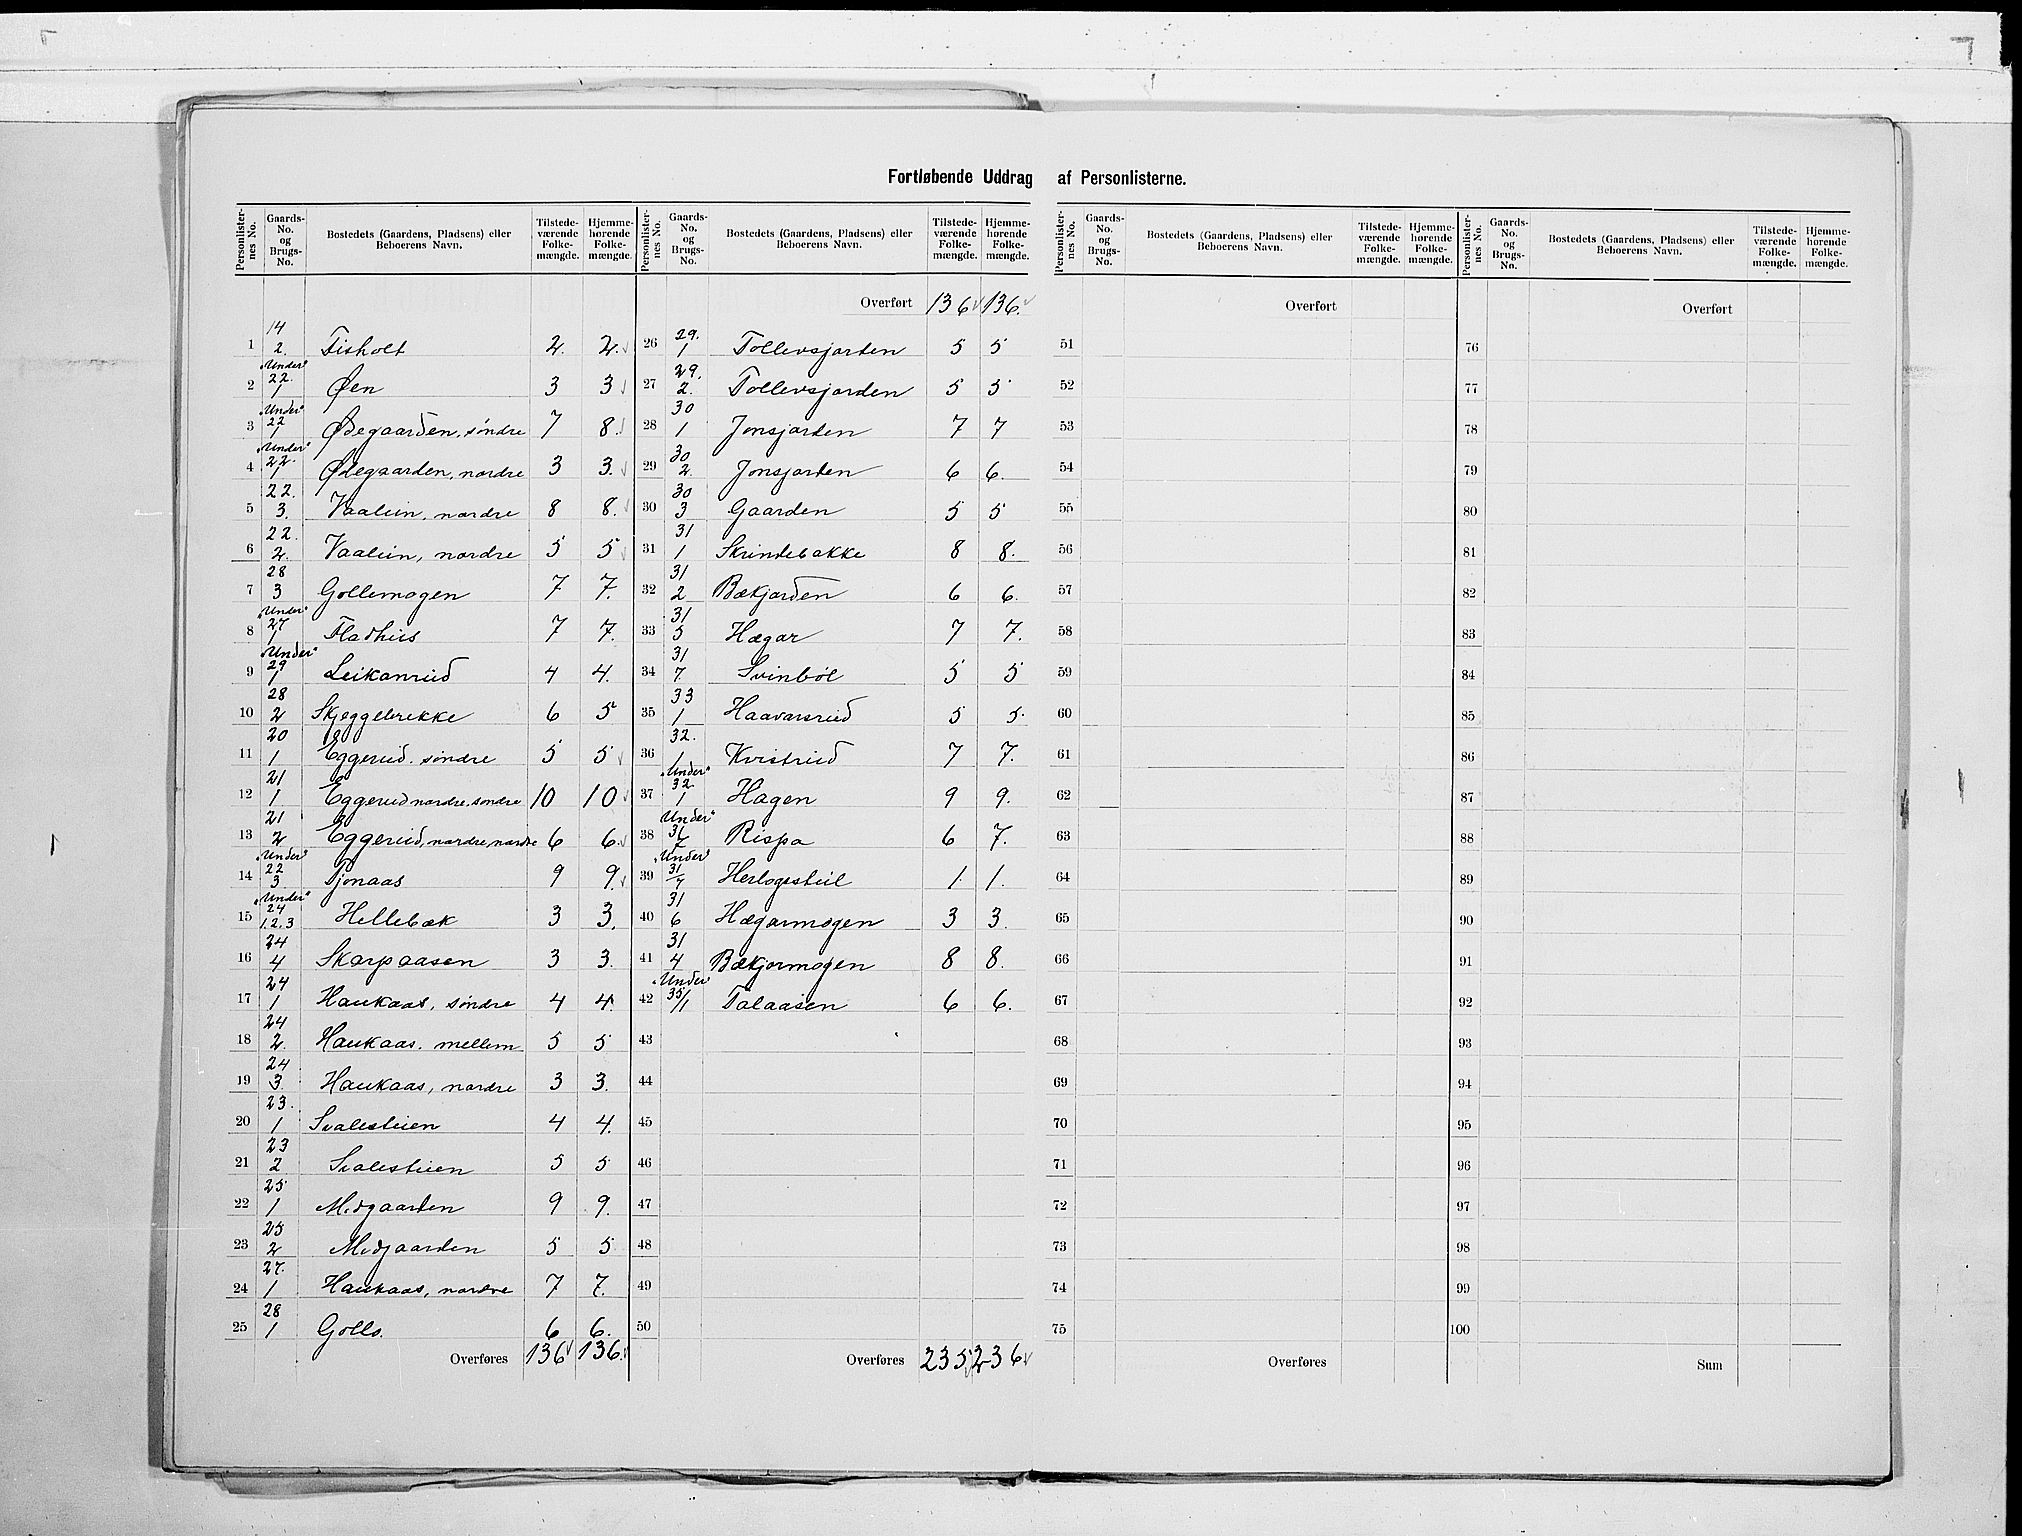 Fortløbende Uddrag af Personlisterne.
Personlisternes No. Gaards-No. og Brugs-No. Bostedets (Gaardens, Pladsens) eller Beboerens Navn. Tilstedeværende Folkemængde. Hjemmehørende Folkemængde.
1 14 2. Fisholt 2. 2.
2 „Under“ 22. 1 Øen 3 3
3 „Under“ 22 1 Ødegaarden, søndre 7 8.
4 „Under“ 22. 1 Ødegaarden, nordre 3 3.
5 22. 3. Vaalein, nordre 8 8.
6 22. 2. Vaalein, nordre 5 5
7 28 3 Gollemogen 7 7.
8 „Under“ 27 1 Fladhus 7 7.
9 „Under“ 29 1 Leikanrud 4 4.
10 28 2 Skjeggebrekke 6 5
11 20 1 Eggerud. søndre 5 5
12 21 1 Eggerud nordre, søndre 10 10
13 21 2 Eggerud, nordre, nordre 6 6.
14 „Under“ 22 3 Tjønaas 9 9.
15 „Under“ 24 1.2.3 Hellebæk 3 3.
16 24 4 Skarpaasen 3 3.
17 24 1 Haukaas, søndre 4 4.
18 24 2. Haukaas. mellem 5 5
19 24 3. Haukaas, nordre 3 3.
20 23. 1 Svalesteien 4 4.
21 23 2 Svalesteien 5 5
22 25 1 Midgaarden 9 9.
23 25 2 Midgaarden 5 5
24 27. 1 Haukaas, nordre 7 7.
25 28 1 Golls. 6 6.
Overføres 136 136.
Personlisternes No. Gaards-No. og Brugs-No. Bostedets (Gaardens, Pladsens) eller Beboerens Navn. Tilstedeværende Folkemængde. Hjemmehørende Folkemængde.
Overført 136 136.
26 29. 1 Tollevsjorden 5 5
27 29. 2. Tollevsjorden 5 5
28 30 1 Jonsjorden 7 7
29 30 2. Jonsjorden 6 6.
30 30 3 Gaarden 5 5
31 31 1 Skrindebakke 8 8.
32 31 2 Bækjorden 6 6.
33 31 5 Hægar 7 7.
34 31 7. Svinbøl 5 5
35 33 1 Haavarsrud 5 5.
36 32. 1 Kvistrud 7 7.
37 „Under“ 32. 1 Hagen 9 9.
38 Under“ 31 7 Rispa 6 7.
39 „Under“ 31 7 Herlogsteil 1 1.
40 31 6 Hægarmogen 3 3.
41 31 4 Bækjormogen 8 8.
42 „Under 35/1 Talaasen 6 6.
43
44
45
46
47
48
49
50
Overføres 235 236
Personlisternes No. Gaards-No. og Brugs-No. Bostedets (Gaardens, Pladsens) eller Beboerens Navn. Tilstedeværende Folkemængde. Hjemmehørende Folkemængde.
Overført
51
52
53
54
55
56
57
58
59
60
61
62
63
64
65
66
67
68
69
70
71
72
73
74
75
Overføres
Personlisternes No. Gaards-No. og Brugs-No. Bostedets (Gaardens, Pladsens) eller Beboerens Navn. Tilstedeværende Folkemængde. Hjemmehørende Folkemængde.
Overført
76
77
78
79
80
81
82
83
84
85
86
87
88
89
90
91
92
93
94
95
96
97
98
99
100
Sum